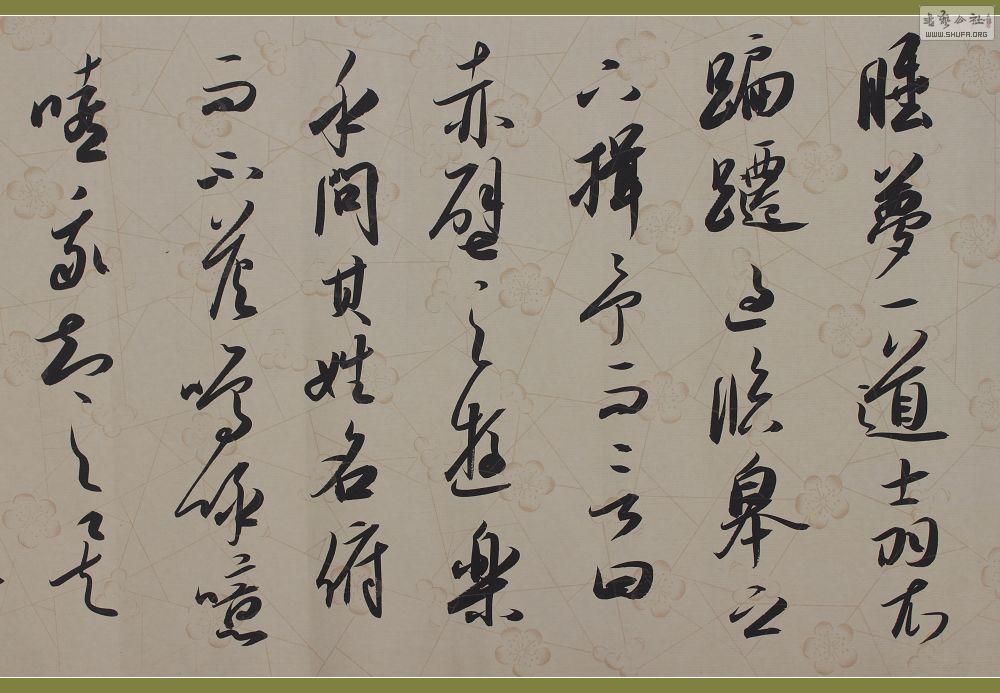 睡夢一道士羽衣
蹁躚過臨皋之
下揖予而言曰
赤壁之遊樂
乎問其姓名俯
而不答嗚呼噫
嘻我知之矣
書藝公社
WWW.SHUFA.ORG